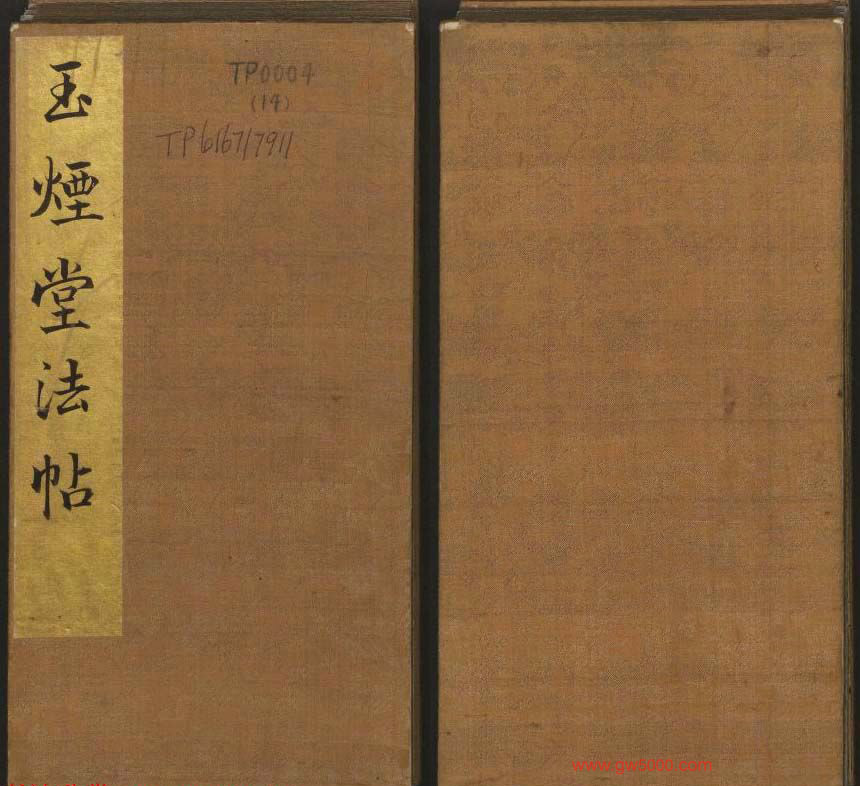 玉煙堂法帖
TP0004
(14)
TP6167/7911
www.gw5000.com